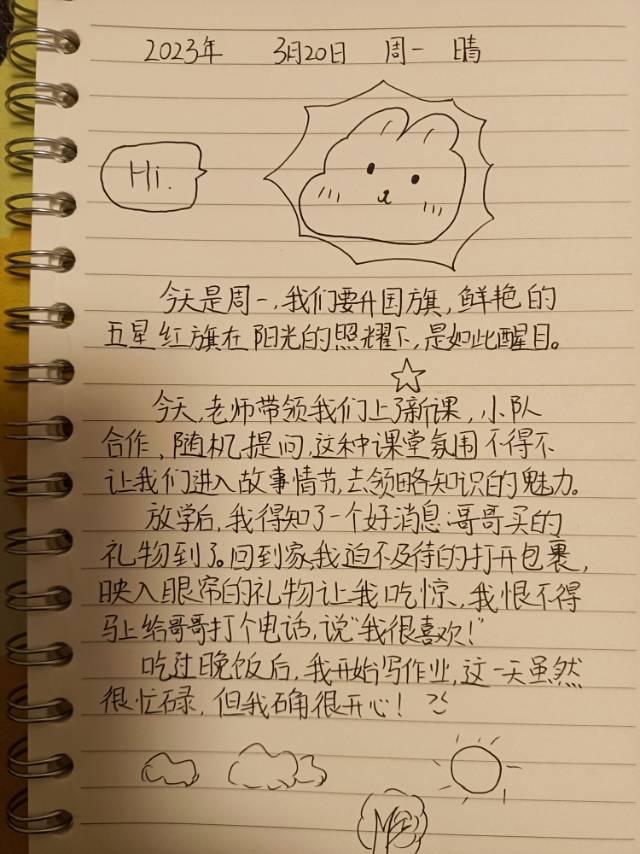 2023年 3月20日 周一 晴
Hi.
今天是周一,我们要升国旗,鲜艳的
五星红旗在阳光的照耀下,是如此醒目。
今天,老师带领我们上了新课,小队
合作,随机提问,这种课堂氛围不得不
让我们进入故事情节,去领略知识的魅力。
放学后,我得知了一个好消息:哥哥买的
礼物到了。回到家,我迫不及待的打开包裹,
映入眼帘的礼物让我吃惊,我恨不得
马上给哥哥打个电话,说“我很喜欢!”
吃过晚饭后,我开始写作业,这一天虽然
很忙碌,但我确很开心!